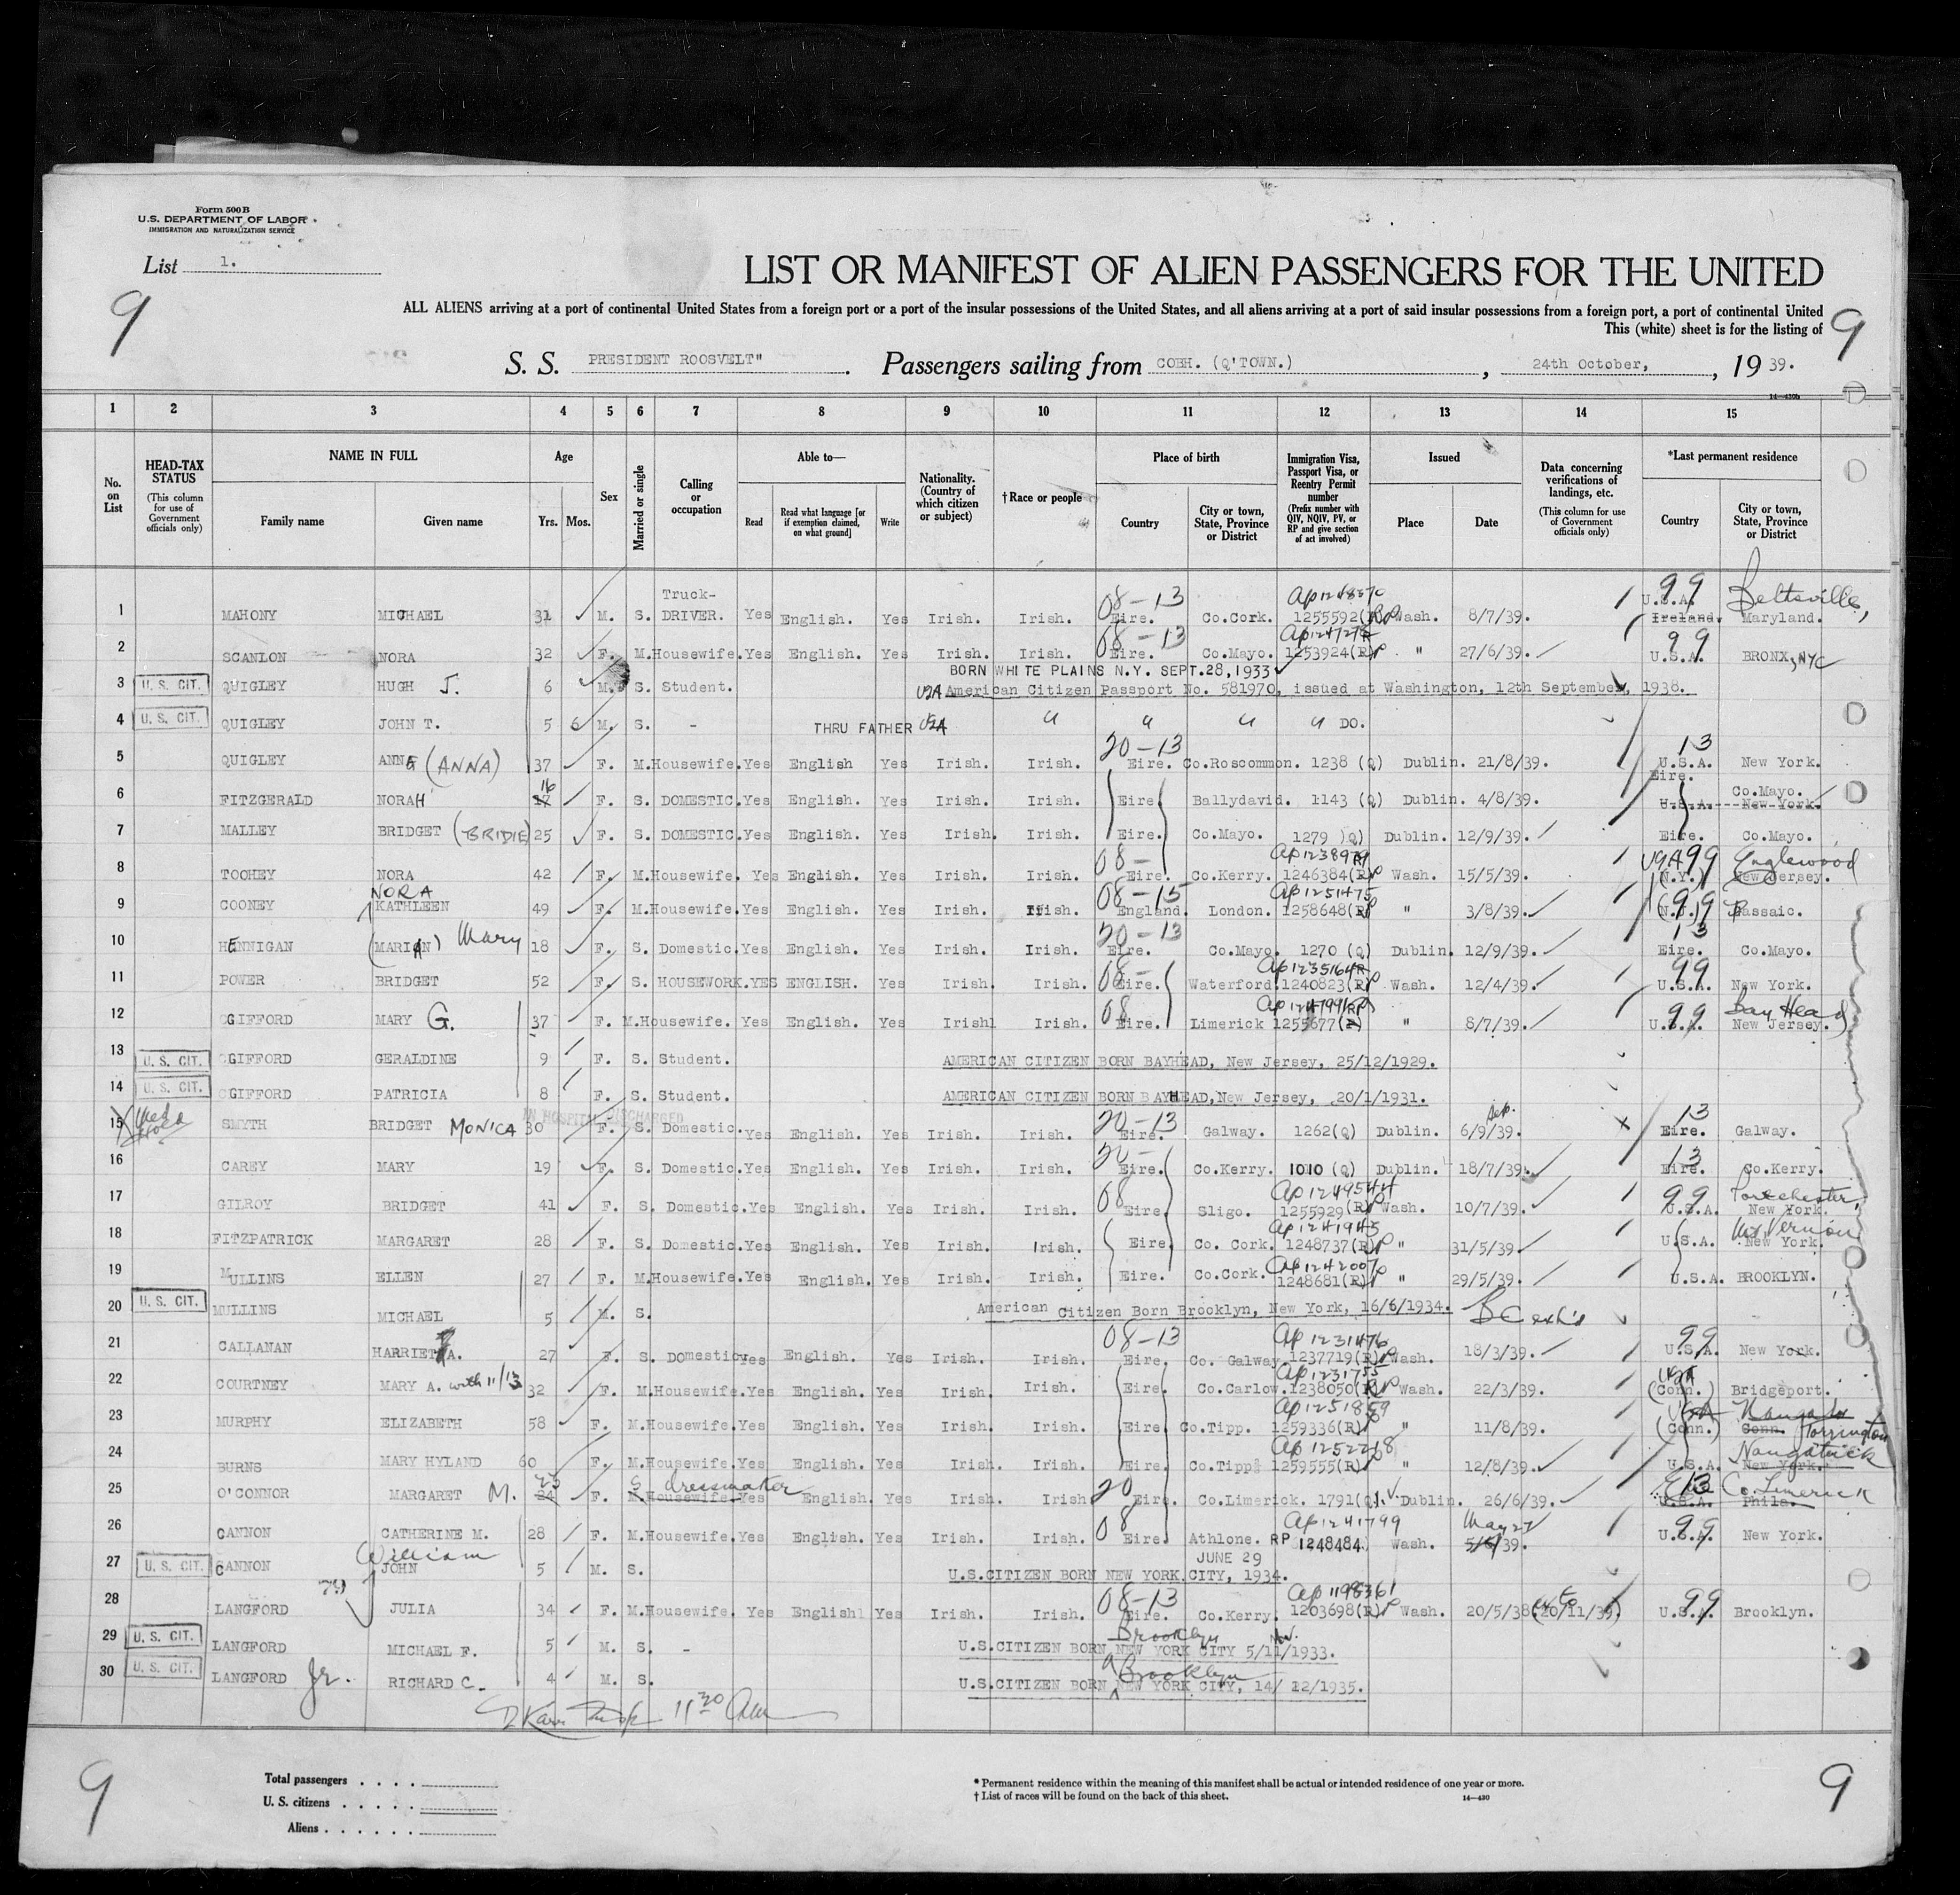 Form 500B
U.S. DEPARTMENT OF LABOR
IMMIGRATION AND NATURALIZATION SERVICE
List 1.
9
LIST OR MANIFEST OF ALIEN PASSENGERS FOR THE UNITED
ALL ALIENS arriving at a port of continental United States from a foreign port or a port of the insular possessions of the United States, and all aliens arriving at a port of said insular possessions from a foreign port, a port of continental United
This (white) sheet is for the listing of
9
S. S. PRESIDENT ROOSVELT" . Passengers sailing from COBH. (Q'TOWN.) , 24th October, , 19 39.
14—430b
1 2 3 4 5 6 7 8 9 10 11 12 13 14 15
No. on List
HEAD-TAX STATUS (This column for use of Government officials only)
NAME IN FULL Family name Given name
Age Yrs. Mos.
Sex
Married or single
Calling or occupation
Able to— Read Read what language [or if exemption claimed, on what ground] Write
Nationality. (Country of which citizen or subject)
†Race or people
Place of birth Country City or town, State, Province or District
Immigration Visa, Passport Visa, or Reentry Permit number (Prefix number with QIV, NQIV, PV, or RP and give section of act involved)
Issued Place Date
Data concerning verifications of landings, etc. (This column for use of Government officials only)
*Last permanent residence Country City or town, State, Province or District
Truck- 08-13 99 Beltsville,
1 MAHONY MICHAEL 31 M. S. DRIVER. Yes English. Yes Irish. Irish. Eire. Co.Cork. 1255592(R) Wash. 8/7/39. U.S.A. Ireland. Maryland.
08-13 99
2 SCANLON NORA 32 F. M. Housewife. Yes English. Yes Irish. Irish. Eire. Co.Mayo. 1253924(R) " 27/6/39. U.S.A. BRONX, NYC
BORN WHITE PLAINS N.Y. SEPT.28,1933
3 U.S. CIT. QUIGLEY HUGH J. 6 M. S. Student. USA American Citizen Passport No. 581970, issued at Washington, 12th September, 1938.
4 U.S. CIT. QUIGLEY JOHN T. 5 6 M. S. - THRU FATHER USA " " " " DO.
20-13 13
5 QUIGLEY ANNE (ANNA) 37 F. M. Housewife. Yes English Yes Irish. Irish. Eire. Co.Roscommon. 1238 (Q) Dublin. 21/8/39. U.S.A. New York.
16 Eire. Co.Mayo.
6 FITZGERALD NORAH F. S. DOMESTIC. Yes English. Yes Irish. Irish. Eire Ballydavid. 1143 (Q) Dublin. 4/8/39. U.S.A. New York.
7 MALLEY BRIDGET (BRIDIE) 25 F. S. DOMESTIC. Yes English. Yes Irish. Irish. Eire. Co.Mayo. 1279 )Q) Dublin. 12/9/39. Eire. Co.Mayo.
08- Ap1238979 USA 99 Englewood
8 TOOHEY NORA 42 F. M. Housewife. Yes English. Yes Irish. Irish. Eire. Co.Kerry. 1246384(R) Wash. 15/5/39. (N.Y.) New Jersey.
NORA 08-15 Ap1251475 99
9 COONEY KATHLEEN 49 F. M. Housewife. Yes English. Yes Irish. Irish. England. London. 1258648(R) " 3/8/39. Passaic.
20-13 13
10 HENNIGAN (MARIAN) Mary 18 F. S. Domestic. Yes English. Yes Irish. Irish. Eire. Co.Mayo. 1270 (Q) Dublin. 12/9/39. Eire. Co.Mayo.
08- Ap1235164 99
11 POWER BRIDGET 52 F. S. HOUSEWORK. YES ENGLISH. Yes Irish. Irish. Eire. Waterford. 1240823(R) Wash. 12/4/39. U.S.A. New York.
08 99 Bay Head
12 GIFFORD MARY G. 37 F. M. Housewife. Yes English. Yes Irishl Irish. Eire. Limerick 1255677(R) " 8/7/39. U.S.A. New Jersey.
13 U.S. CIT. GIFFORD GERALDINE 9 F. S. Student. AMERICAN CITIZEN BORN BAYHEAD, New Jersey, 25/12/1929.
14 U.S. CIT. GIFFORD PATRICIA 8 F. S. Student. AMERICAN CITIZEN BORN BAYHEAD, New Jersey, 20/1/1931.
IN HOSPITAL DISCHARGED 20-13 Sep. 13
15 SMYTH BRIDGET MONICA 30 F. S. Domestic. Yes English. Yes Irish. Irish. Eire. Galway. 1262(Q) Dublin. 6/9/39. Eire. Galway.
20- 13
16 CAREY MARY 19 F. S. Domestic. Yes English. Yes Irish. Irish. Eire. Co.Kerry. 1010 (Q) Dublin. 18/7/39. Eire. Co.Kerry.
08 Ap1249544 99 Porchester,
17 GILROY BRIDGET 41 F. S. Domestic. Yes English. Yes Irish. Irish. Eire. Sligo. 1255929(R) Wash. 10/7/39. U.S.A. New York.
Ap1241945 Mt Vernon
18 FITZPATRICK MARGARET 28 F. S. Domestic. Yes English. Yes Irish. Irish. Eire. Co. Cork. 1248737(R) " 31/5/39 U.S.A. New York.
Ap1242007
19 MULLINS ELLEN 27 F. M. Housewife. Yes English. Yes Irish. Irish. Eire. Co.Cork. 1248681(R) " 29/5/39. U.S.A. BROOKLYN.
20 U.S. CIT. MULLINS MICHAEL 5 M. S. American Citizen Born Brooklyn, New York, 16/6/1934. BC exh's
08-13 Ap1231476 99
21 CALLANAN HARRIET A. 27 F. S. Domestic. Yes English. Yes Irish. Irish. Eire. Co. Galway. 1237719(R) Wash. 18/3/39. U.S.A. New York.
Ap1231755 USA
22 COURTNEY MARY A. with 11/13 32 F. M. Housewife. Yes English. Yes Irish. Irish. Eire. Co.Carlow. 1238050(R) Wash. 22/3/39. (Conn.) Bridgeport.
Ap1251859 USA
23 MURPHY ELIZABETH 58 F. M. Housewife. Yes English. Yes Irish. Irish. Eire Co.Tipp. 1259336(R) " 11/8/39. (Conn.) Conn. Torrington
Ap1252218 Naugatuck
24 BURNS MARY HYLAND 60 F. M. Housewife. Yes English. Yes Irish. Irish. Eire. Co.Tipp. 1259555(R) " 12/8/39. U.S.A. New York.
23 S dressmaker 20 13 Co. Limerick
25 O'CONNOR MARGARET M. 24 F. M. Housewife. Yes English. Yes Irish. Irish Eire. Co.Limerick. 1791(Q). Dublin. 26/6/39. U.S.A. Phila.
08 Ap1241799 May 27 99
26 CANNON CATHERINE M. 28 F. M. Housewife. Yes English. Yes Irish. Irish. Eire. Athlone. RP 1248484 Wash. 5/6/39. U.S.A. New York.
William JUNE 29
27 U.S. CIT. CANNON JOHN 5 M. S. U.S.CITIZEN BORN NEW YORK CITY, 1934.
79 08-13 Ap1198361 99
28 LANGFORD JULIA 34 F. M. Housewife. Yes Englishl Yes Irish. Irish. Eire. Co.Kerry. 1203698(R) Wash. 20/5/38 (20/11/39) U.S.A. Brooklyn.
Brooklyn Nov.
29 U.S. CIT. LANGFORD MICHAEL F. 5 M. S. - U.S.CITIZEN BORN NEW YORK CITY 5/11/1933.
Brooklyn
30 U.S. CIT. LANGFORD Jr. RICHARD C. 4 M. S. U.S.CITIZEN BORN NEW YORK CITY, 14/ 12/1935.
11 30 am
9
Total passengers . . . .
U. S. citizens . . . . .
Aliens . . . . . .
* Permanent residence within the meaning of this manifest shall be actual or intended residence of one year or more.
† List of races will be found on the back of this sheet.
14—430
9